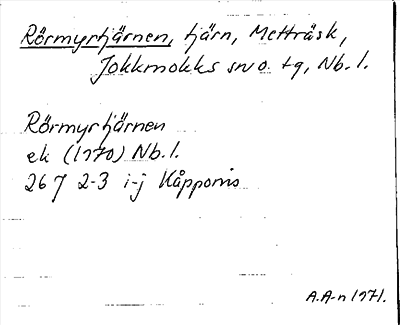 Rörmyrtjärnen, tjärn, Metträsk,
Jokkmokks sn o. tg, Nb. l.
Rörmyrtjärnen
ek (1970) Nb. l.
26 J 2-3 i-j Kåpponis
A.A-n 1971.